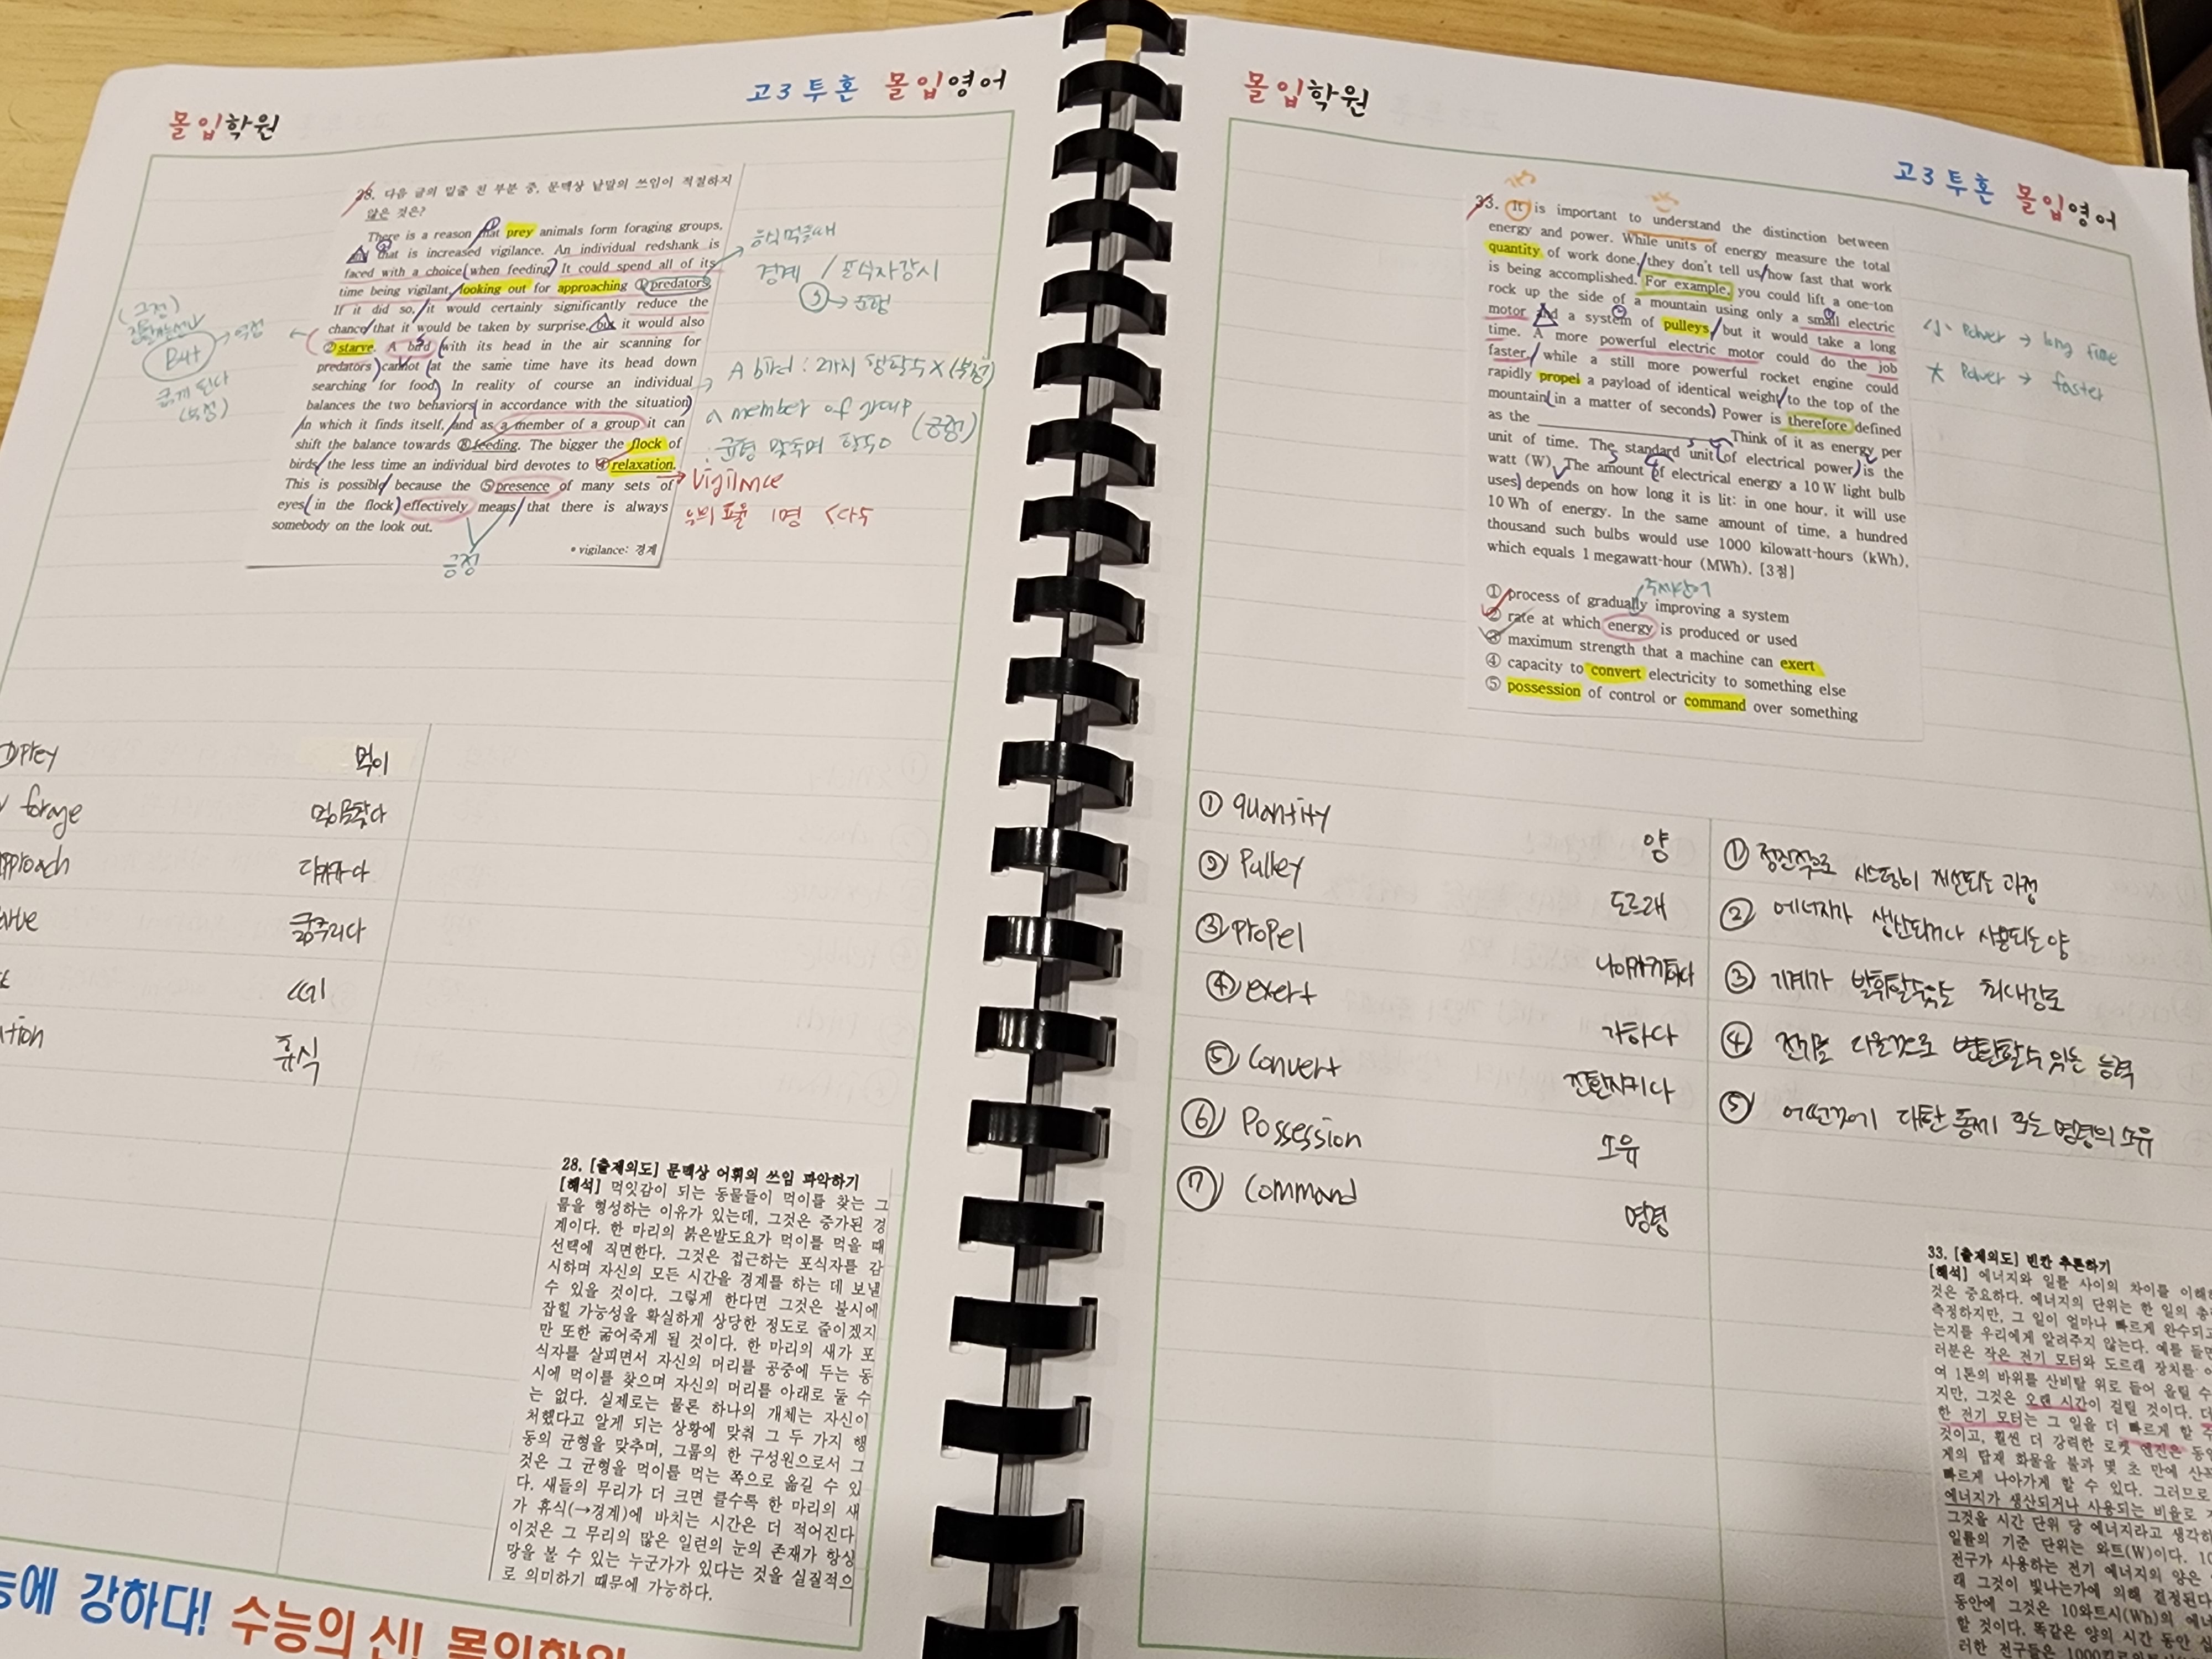 몰입학원
고3투혼 몰입영어
28. 다음 글의 밑줄 친 부분 중, 문맥상 낱말의 쓰임이 적절하지
않은 것은?
There is a reason that prey animals form foraging groups,
and that is increased vigilance. An individual redshank is
faced with a choice when feeding. It could spend all of its
time being vigilant, looking out for approaching ① predators.
If it did so, it would certainly significantly reduce the
chance that it would be taken by surprise, but it would also
② starve. A bird with its head in the air scanning for
predators cannot at the same time have its head down
searching for food. In reality of course an individual
balances the two behaviors in accordance with the situation
in which it finds itself, and as a member of a group it can
shift the balance towards ③ feeding. The bigger the flock of
birds, the less time an individual bird devotes to ④ relaxation.
This is possible because the ⑤ presence of many sets of
eyes in the flock effectively means that there is always
somebody on the look out.
* vigilance: 경계
음식먹을때
경계 / 포식자감시
But
굶게 된다
A bird : 2가지 행할수 X (부정)
a member of group
(긍정)
: 균형 맞추며 할수 O
Vigilance
긍정
prey 먹이
forage 먹이를찾다
다가가다
굶주리다
휴식
28. [출제의도] 문맥상 어휘의 쓰임 파악하기
[해석] 먹잇감이 되는 동물들이 먹이를 찾는 그
룹을 형성하는 이유가 있는데, 그것은 증가된 경
계이다. 한 마리의 붉은발도요가 먹이를 먹을 때
선택에 직면한다. 그것은 접근하는 포식자를 감
시하며 자신의 모든 시간을 경계를 하는 데 보낼
수 있을 것이다. 그렇게 한다면 그것은 불시에
잡힐 가능성을 확실하게 상당한 정도로 줄이겠지
만 또한 굶어죽게 될 것이다. 한 마리의 새가 포
식자를 살피면서 자신의 머리를 공중에 두는 동
시에 먹이를 찾으며 자신의 머리를 아래로 둘 수
는 없다. 실제로는 물론 하나의 개체는 자신이
처했다고 알게 되는 상황에 맞춰 그 두 가지 행
동의 균형을 맞추며, 그룹의 한 구성원으로서 그
것은 그 균형을 먹이를 먹는 쪽으로 옮길 수 있
다. 새들의 무리가 더 크면 클수록 한 마리의 새
가 휴식(→경계)에 바치는 시간은 더 적어진다.
이것은 그 무리의 많은 일련의 눈의 존재가 항상
망을 볼 수 있는 누군가가 있다는 것을 실질적으
로 의미하기 때문에 가능하다.
능에 강하다! 수능의 신! 몰입학원
몰입학원
고3투혼 몰입영어
33. It is important to understand the distinction between
energy and power. While units of energy measure the total
quantity of work done, they don't tell us how fast that work
is being accomplished. For example, you could lift a one-ton
rock up the side of a mountain using only a small electric
motor and a system of pulleys, but it would take a long
time. A more powerful electric motor could do the job
faster, while a still more powerful rocket engine could
rapidly propel a payload of identical weight to the top of the
mountain in a matter of seconds. Power is therefore defined
as the ____________. Think of it as energy per
unit of time. The standard unit of electrical power is the
watt (W). The amount of electrical energy a 10 W light bulb
uses depends on how long it is lit: in one hour, it will use
10 Wh of energy. In the same amount of time, a hundred
thousand such bulbs would use 1000 kilowatt-hours (kWh),
which equals 1 megawatt-hour (MWh). [3점]
① process of gradually improving a system
② rate at which energy is produced or used
③ maximum strength that a machine can exert
④ capacity to convert electricity to something else
⑤ possession of control or command over something
小 Power → long time
大 Power → faster
① quantity 양
② Pulley 도르래
③ Propel 나아가게하다
④ exert 가하다
⑤ Convert 전환시키다
⑥ Possession 소유
⑦ Command 명령
① 점진적으로 시스템이 개선되는 과정
② 에너지가 생산되거나 사용되는 양
③ 기계가 발휘할수있는 최대강도
④ 전기를 다른것으로 변환할수 있는 능력
⑤ 어떤것에 대한 통제 또는 명령의 소유
33. [출제의도] 빈칸 추론하기
[해석] 에너지와 일률 사이의 차이를 이해하
것은 중요하다. 에너지의 단위는 한 일의 총
측정하지만, 그 일이 얼마나 빠르게 완수되고
는지를 우리에게 알려주지 않는다. 예를 들면
러분은 작은 전기 모터와 도르래 장치를 이
여 1톤의 바위를 산비탈 위로 들어 올릴 수
지만, 그것은 오랜 시간이 걸릴 것이다. 더
한 전기 모터는 그 일을 더 빠르게 할 수
것이고, 훨씬 더 강력한 로켓 엔진은 동일
게의 탑재 화물을 불과 몇 초 만에 산꼭
빠르게 나아가게 할 수 있다. 그러므로
에너지가 생산되거나 사용되는 비율로
그것을 시간 단위 당 에너지라고 생각하
일률의 기준 단위는 와트(W)이다. 10
전구가 사용하는 전기 에너지의 양은
래 그것이 빛나는가에 의해 결정된다
동안에 그것은 10와트시(Wh)의 에너
할 것이다. 똑같은 양의 시간 동안 십
러한 전구들은 1000킬로와트시